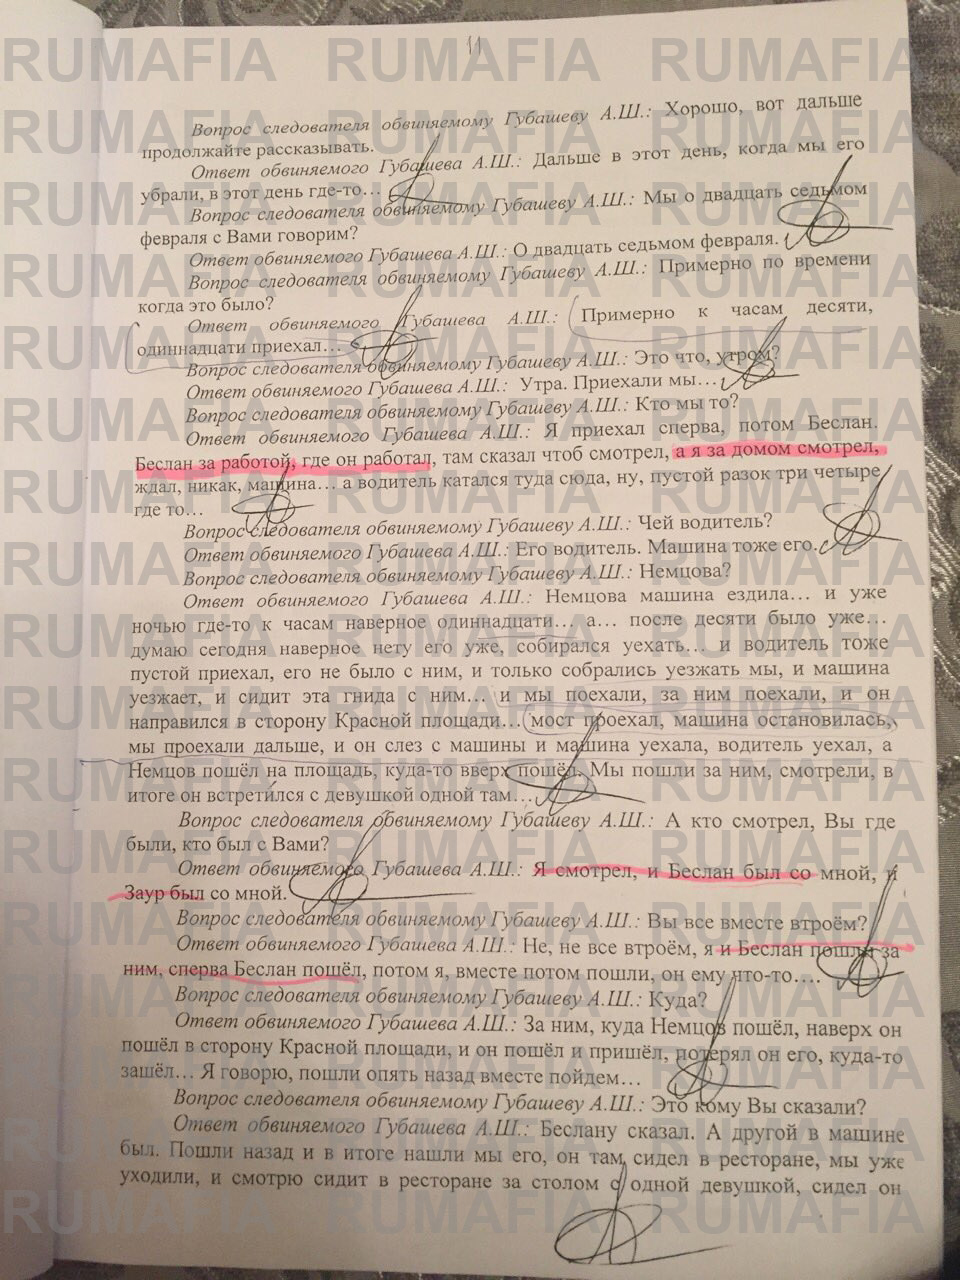 11
Вопрос следователя обвиняемому Губашеву А.Ш.: Хорошо, вот дальше
продолжайте рассказывать.
Ответ обвиняемого Губашева А.Ш.: Дальше в этот день, когда мы его
убрали, в этот день где-то…
Вопрос следователя обвиняемому Губашеву А.Ш.: Мы о двадцать седьмом
февраля с Вами говорим?
Ответ обвиняемого Губашева А.Ш.: О двадцать седьмом февраля.
Вопрос следователя обвиняемому Губашеву А.Ш.: Примерно по времени
когда это было?
Ответ обвиняемого Губашева А.Ш.: Примерно к часам десяти,
одиннадцати приехал…
Вопрос следователя обвиняемому Губашеву А.Ш.: Это что, утром?
Ответ обвиняемого Губашева А.Ш.: Утра. Приехали мы…
Вопрос следователя обвиняемому Губашеву А.Ш.: Кто мы то?
Ответ обвиняемого Губашева А.Ш.: Я приехал сперва, потом Беслан.
Беслан за работой, где он работал, там сказал чтоб смотрел, а я за домом смотрел,
ждал, никак, машина… а водитель катался туда сюда, ну, пустой разок три четыре
где то…
Вопрос следователя обвиняемому Губашеву А.Ш.: Чей водитель?
Ответ обвиняемого Губашева А.Ш.: Его водитель. Машина тоже его.
Вопрос следователя обвиняемому Губашеву А.Ш.: Немцова?
Ответ обвиняемого Губашева А.Ш.: Немцова машина ездила… и уже
ночью где-то к часам наверное одиннадцати… а… после десяти было уже…
думаю сегодня наверное нету его уже, собирался уехать… и водитель тоже
пустой приехал, его не было с ним, и только собрались уезжать мы, и машина
уезжает, и сидит эта гнида с ним… и мы поехали, за ним поехали, и он
направился в сторону Красной площади… мост проехал, машина остановилась,
мы проехали дальше, и он слез с машины и машина уехала, водитель уехал, а
Немцов пошёл на площадь, куда-то вверх пошёл. Мы пошли за ним, смотрели, в
итоге он встретился с девушкой одной там…
Вопрос следователя обвиняемому Губашеву А.Ш.: А кто смотрел, Вы где
были, кто был с Вами?
Ответ обвиняемого Губашева А.Ш.: Я смотрел, и Беслан был со мной, и
Заур был со мной.
Вопрос следователя обвиняемому Губашеву А.Ш.: Вы все вместе втроём?
Ответ обвиняемого Губашева А.Ш.: Не, не все втроём, я и Беслан пошли за
ним, сперва Беслан пошёл, потом я, вместе потом пошли, он ему что-то….
Вопрос следователя обвиняемому Губашеву А.Ш.: Куда?
Ответ обвиняемого Губашева А.Ш.: За ним, куда Немцов пошёл, наверх он
пошёл в сторону Красной площади, и он пошёл и пришёл, потерял он его, куда-то
зашёл… Я говорю, пошли опять назад вместе пойдем…
Вопрос следователя обвиняемому Губашеву А.Ш.: Это кому Вы сказали?
Ответ обвиняемого Губашева А.Ш.: Беслану сказал. А другой в машине
был. Пошли назад и в итоге нашли мы его, он там сидел в ресторане, мы уже
уходили, и смотрю сидит в ресторане за столом с одной девушкой, сидел он